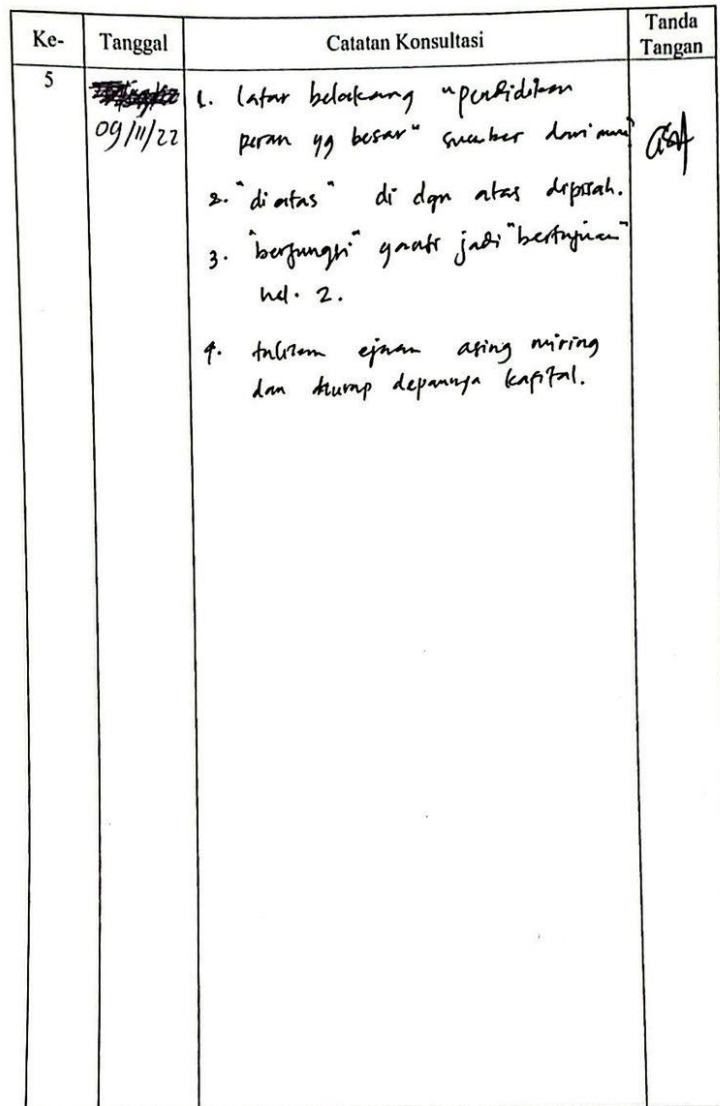 Ke-
Tanggal
Catatan Konsultasi
Tanda
Tangan
5
09/11/22
1. latar belakang "pendidikan
peran yg besar" sumber dari mana
2. "diatas" di dgn atas dipisah.
3. "berfungsi" ganti jadi "bertujuan"
hal. 2.
4. tulisan ejaan asing miring
dan hurup depannya kapital.